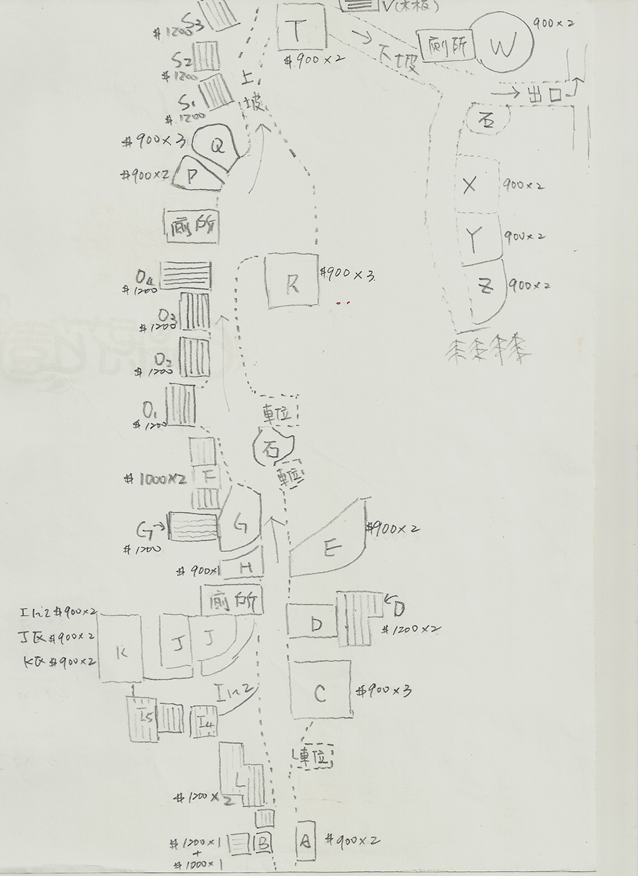 S3
#1200
T
#900×2
V(木板)
→下坡
廁所
W
900×2
S2
#1200
上坡
→出口
S1
#1200
石
#900×3
Q
#900×2
P
X
900×2
廁所
Y
900×2
O4
#1200
R
#900×3
Z
900×2
O3
#1200
O2
#1200
O1
#1200
車位
石
車位
#1000×2
F
G→
#1200
G
E
#900×2
#900×1
H
廁所
D
←D
#1200×2
I1~2 #900×2
J區 #900×2
K區 #900×2
K
J
J
I1~2
C
#900×3
I5
I4
車位
L
#1200×2
#1200×1
+
#1000×1
B
A
#900×2